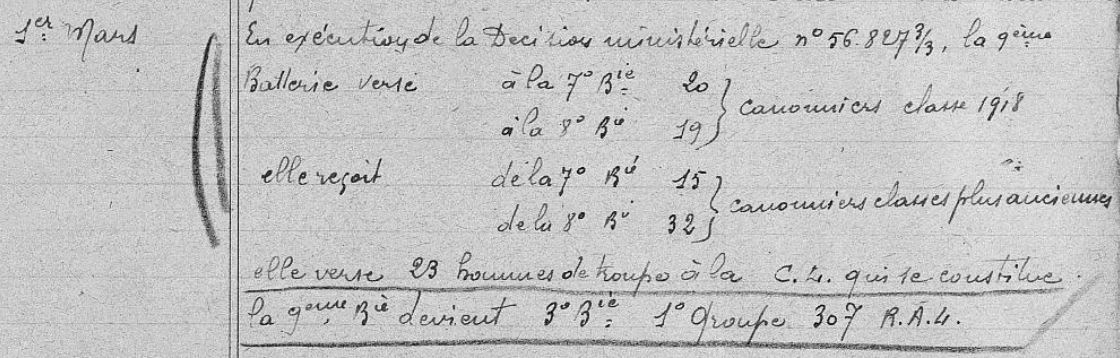 1er Mars
En exécution de la Décision ministérielle n° 56.827 3/3, la 9ème
Batterie verse à la 7° Bie 20
à la 8° Bie 19 } canonniers classe 1918
elle reçoit de la 7° Bie 15
de la 8° Bie 32 } canonniers classes plus anciennes
elle verse 23 hommes de troupe à la C.L. qui se constitue.
la 9ème Bie devient 3° Bie 1° Groupe 307 R.A.L.